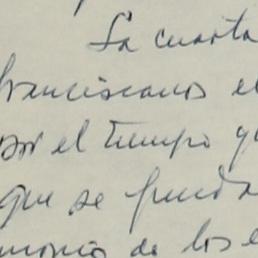 La cuarta
franciscanos e
por el tiempo q
que se pueda
de los e